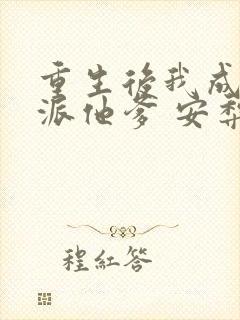 重生後我成
派他爹 安梨
程紅答